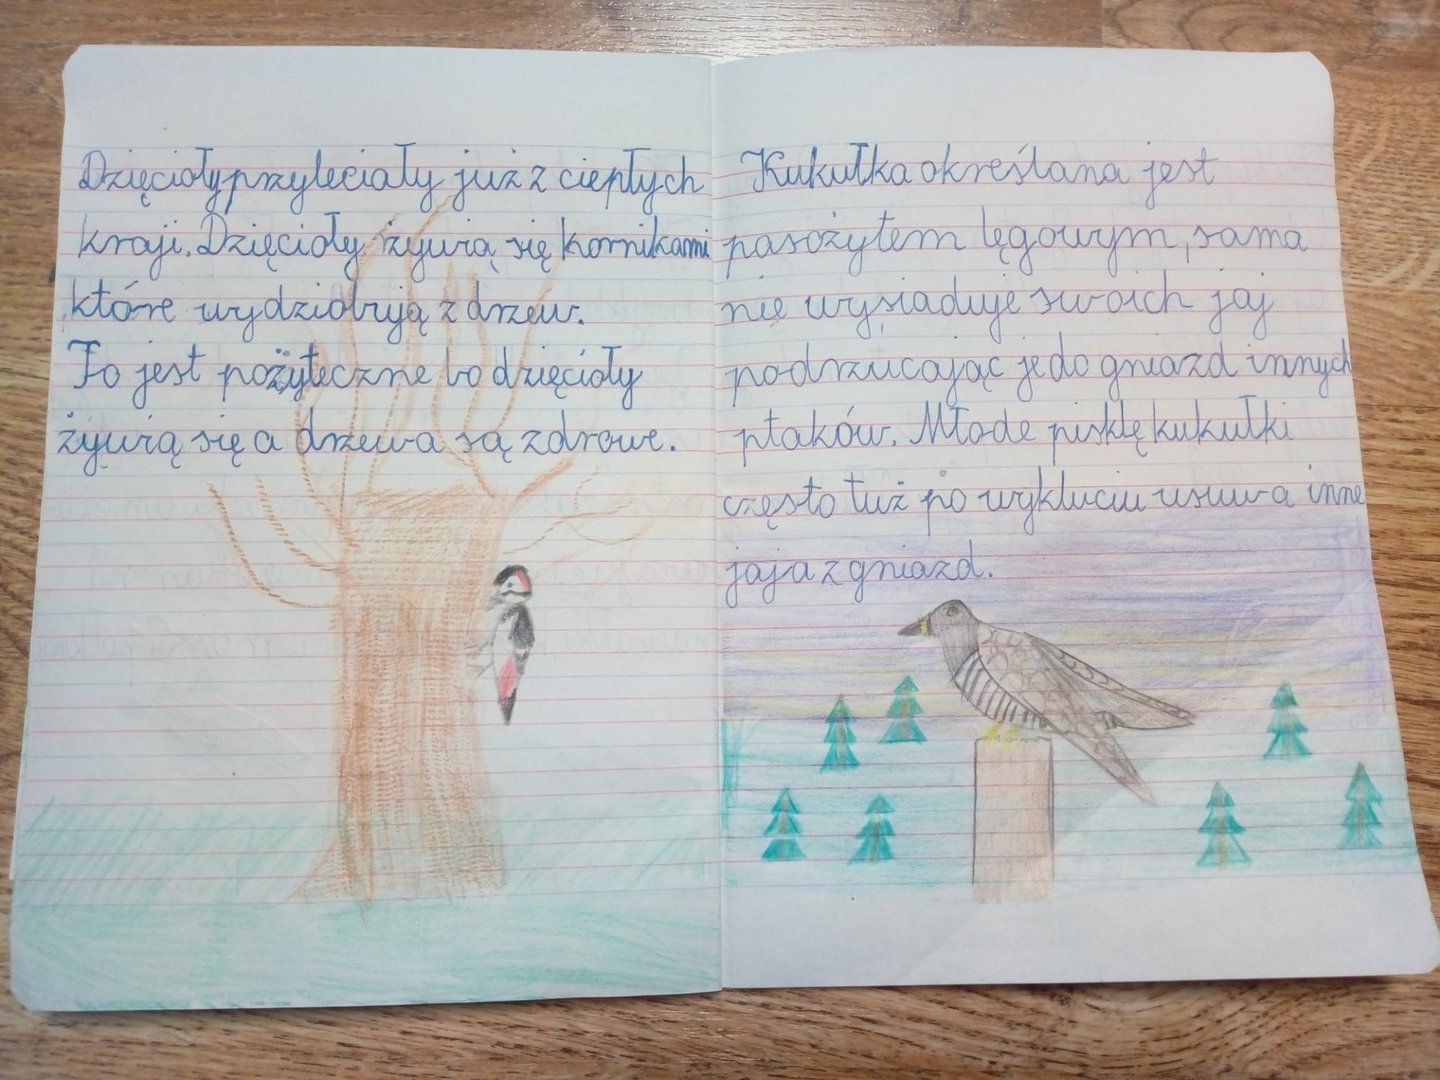 Dzięcioły przyleciały już z ciepłych
kraji. Dzięcioły żywią się kornikami
które wydziobują z drzew.
To jest pożyteczne bo dzięcioły
żywią się a drzewa są zdrowe.
Kukułka określana jest
pasożytem lęgowym, sama
nie wysiaduje swoich jaj
podrzucając je do gniazd innych
ptaków. Młode pisklę kukułki
często tuż po wykluciu usuwa inne
jaja z gniazd.